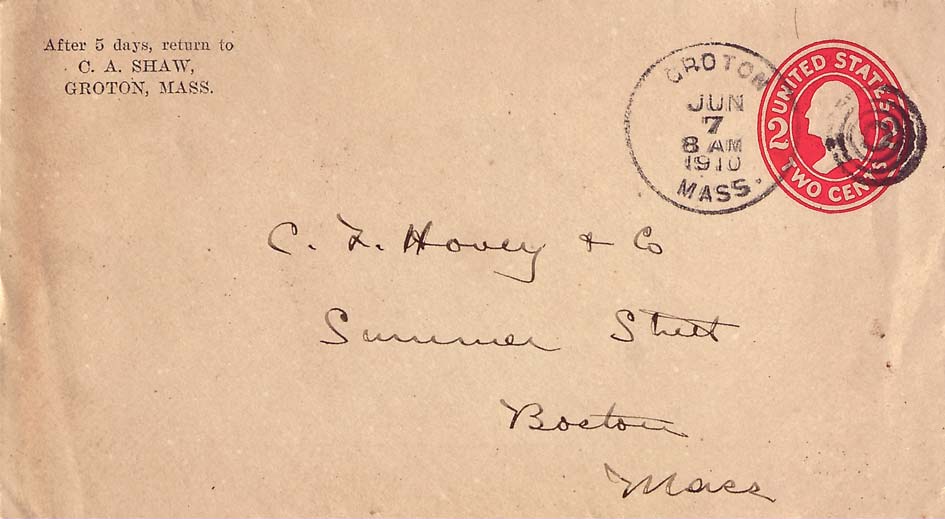 After 5 days, return to
C. A. SHAW,
GROTON, MASS.
GROTON
JUN
7
8 AM
1910
MASS.
UNITED STATES
2 2
TWO CENTS
C. F. Hovey & Co
Summer Street
Boston
Mass